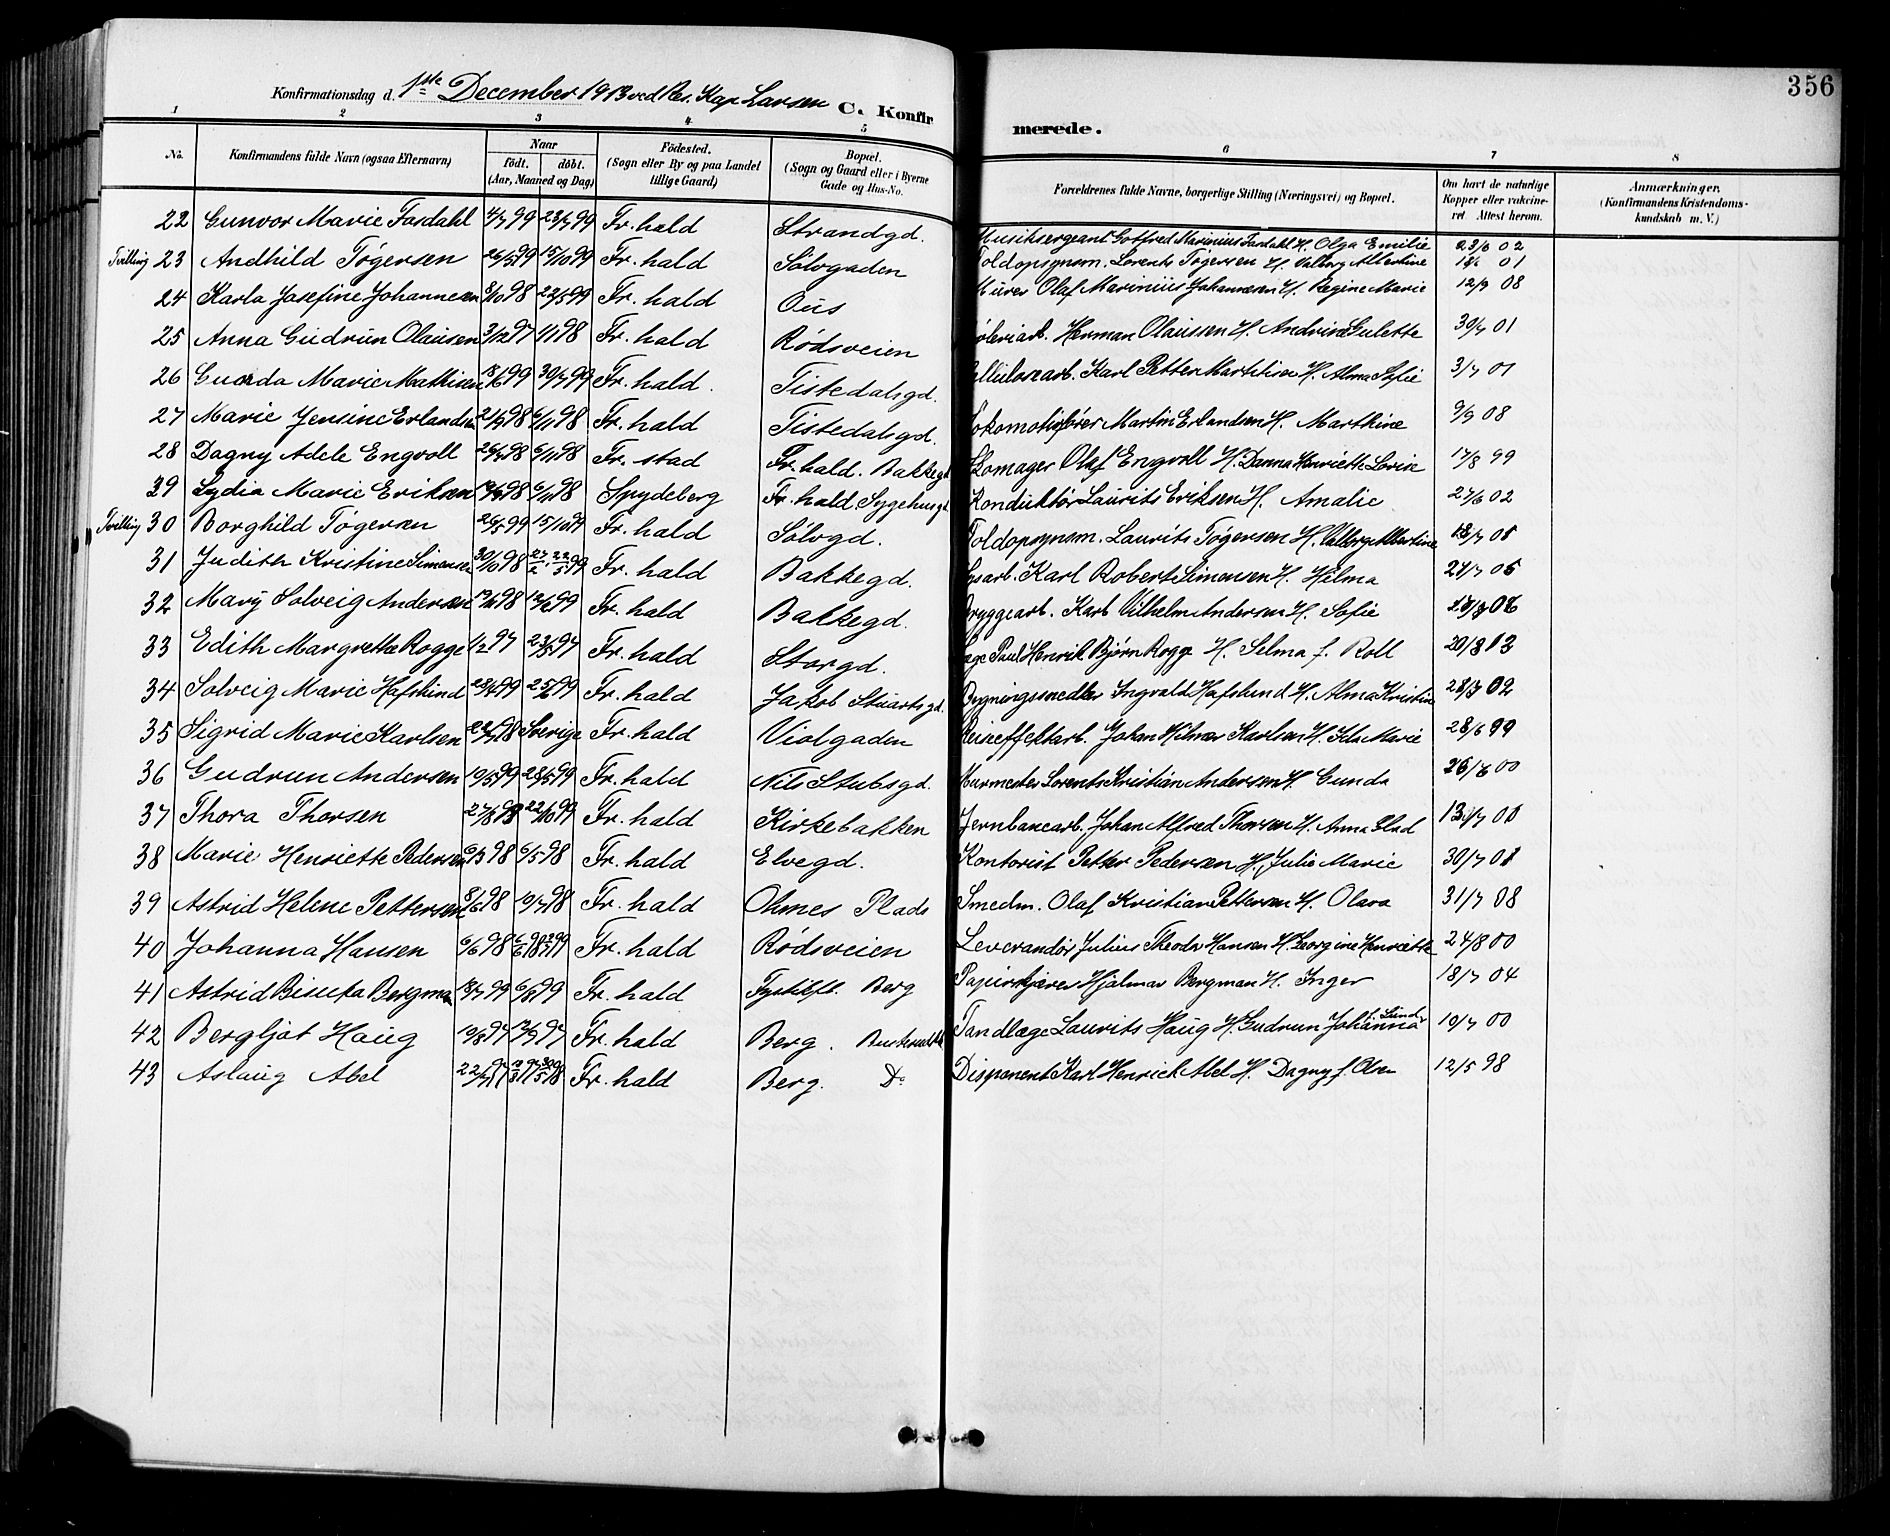 356
Konfirmationsdag d. 1ste December 1913 ved Res. Kap. Larsen C. Konfirmerede.
1 2 3 4 5 6 7 8
No. Konfirmandens fulde Navn (ogsaa Efternavn) Naar født. døbt. (Aar, Maaned og Dag) Fødested. (Sogn eller By og paa Landet tillige Gaard) Bopæl. (Sogn og Gaard eller i Byerne Gade og Hus-No. Forældrenes fulde Navne, borgerlige Stilling (Næringsvei) og Bopæl. Om havt de naturlige Kopper eller vakcineret Attest herom. Anmærkninger. (Konfirmandens Kristendomskundskab m. V.)
22 Gunvor Marie Fosdahl 4/7 99 23/7 99 Fr. hald Strandgd. Musiksergeant Gotfred Marinius H. Olga Emilie 23/6 02
Tvilling 23 Andhild Tøgersen 26/5 99 15/10 99 Fr. hald Sølvgaden Toldopsynsm. Lorents Tøgersen H. Valborg Albertine 01
24 Karla Josefine Johannesen 8/10 98 22/5 99 Fr. hald Ous Murer Olaf Marinius Johannesen H. Regine Marie 12/9 08
25 Anna Gudrun Olausen 3/12 97 1/1 98 Fr. hald Rødsveien Herman Olaussen H. Andrine Gulette 30/7 01
26 Guarda Marie Mathisen 18/6 99 30/7 99 Fr. hald. Tistedalsgd. Cellulosearb. Karl Petter H. Alma Sofie 3/7 01
27 Marie Jensine Erlandsen 21/9 98 6/11 98 Fr. hald Tistedalsgd. Lokomotivfører Martin Erlandsen H. Marthine 9/9 08
28 Dagny Adele Engvoll 26/9 98 6/11 98 Fr. stad Fr. hald. Bakkegd Skomager Olaf Engvoll H. Danna Henriette Lovise 17/8 99
29 Lydia Marie Eriksen 98 6/11 98 Spydeberg Fr. hald Sygehusgd Konduktør Laurits Eriksen H. Amalie 27/6 02
Tvilling 30 Borghild Tøgersen 26/5 99 15/10 99 Fr. hald Sølvgd. Toldopsynsm. Laurits Tøgersen H. Valborg Albertine 05
31 Judith Kristine Simonsen 30/10 98 27/2 22/5 99 Fr. hald Bakkegd. Karl Robert Simonsen H. Hilma 27/7 05
32 Mary Solveig Andersen 98 12/2 99 Fr. hald Bakkegd. Bryggearb. Karl Vilhelm Andersen H. Sofie 06
33 Edith Margrethe Rogge 1/2 97 23/5 97 Fr. hald Storgd. Læge Paul Henrik Bjørn Rogge H. Selma f. Roll 20/8 12
34 Solveig Marie Hafslund 28/4 99 25/6 99 Fr. hald Jakob Stuartsgd. Bygningssnedker Ingvald Hafslund H. Alma Kristine 28/7 02
35 Sigrid Marie Karlsen 98 Sverige Fr. hald Violgaden Reiseffektarb. Johan Hilmer Karlsen H. Ida Marie 28/6 99
36 Gudrun Andersen 19/3 99 28/5 99 Fr. hald Nils Stubsgd. Murmester Lorents Kristian Andersen H. Gunda 26/6 00
37 Thora Thorsen 27/8 98 22/10 99 Fr. hald Kirkebakken Jernbanearb. Johan Alfred Thorsen H. Anna Elad 13/7 01
38 Marie Henriette Pedersen 6/3 98 6/5 98 Fr. hald Elvegd. Kontorist Petter Pedersen H. Julie Marie 30/7 01
39 Astrid Helene Pettersen 8/6 98 10/7 98 Fr. hald Ohmes Plads Smedm. Olaf Kristian Pettersen H. Olava 31/7 08
40 Johanna Hansen 6/6 98 Fr. hald Rødsveien Leverandør Julius Theodor Hansen H. Georgine Henriette 24/8 00
41 Astrid Bisuka Bergman 18/7 99 6/8 99 Fr. hald Berg Hjalmar Bergman H. Inger 18/7 04
42 Bergljot Haug 10/8 97 12/9 97 Fr. hald Berg. Tandlæge Laurits Haug H. Gudrun Johanna f. Lund 10/7 00
43 Aslaug Abel 22/11 97 Fr. hald Berg. Do Disponent Karl Henrick Abel H. Dagny f. Olsen 12/5 98